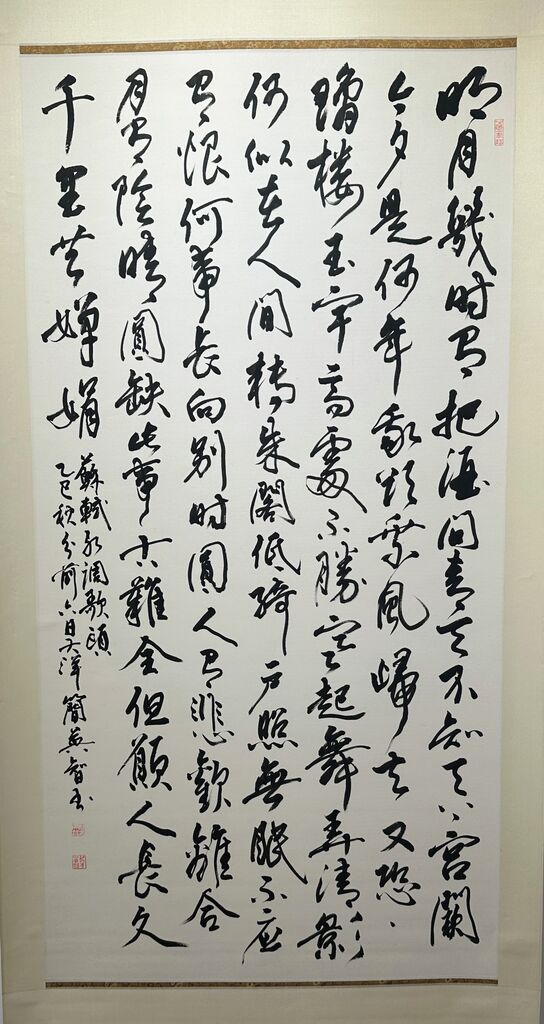 明月幾时有把酒問青天不知天上宮闕
今夕是何年我欲乘風歸去又恐
瓊樓玉宇高處不勝寒起舞弄清影
何似在人間轉朱閣低綺戶照無眠不應
有恨何事長向別时圓人有悲歡離合
月有陰晴圓缺此事古難全但願人長久
千里共嬋娟
蘇軾水調歌頭
乙巳秋分前六日簡英智書